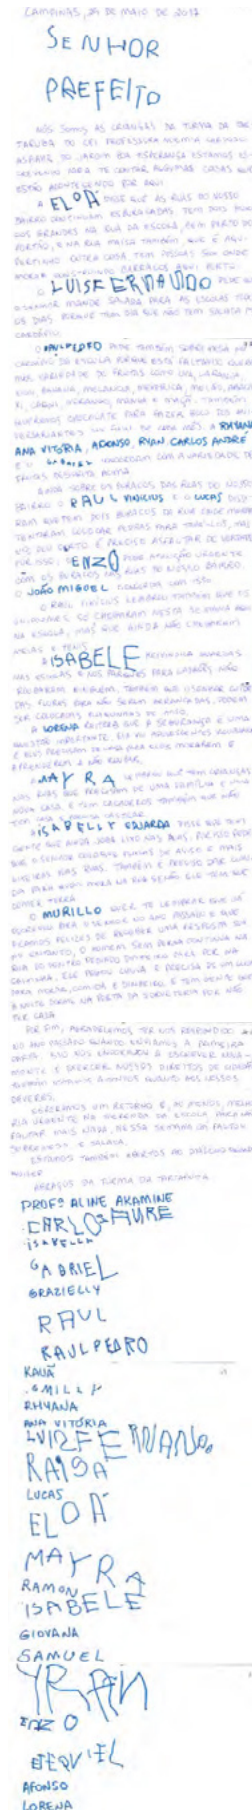 CAMPINAS, 29 DE MAIO DE 2017
SENHOR
PREFEITO
NÓS SOMOS AS CRIANÇAS DA TURMA DA TAR
TARUGA DO CEI PROFESSORA NOEMIA CARDOSO
ASBAHR DO JARDIM BOA ESPERANÇA ESTAMOS ES-
CREVENDO PARA TE CONTAR ALGUMAS COISAS QUE
ESTÃO ACONTECENDO POR AQUI
A ELOÁ DISSE QUE AS RUAS DO NOSSO
BAIRRO CONTINUAM ESBURACADAS. TEM DOIS BURA
COS GRANDES NA RUA DA ESCOLA, BEM PERTO DO
PORTÃO, E NA RUA MAISA TAMBÉM, QUE É AQUI
PERTINHO. OUTRA COISA, TEM PESSOAS SEM ONDE
MORAR CONSTRUINDO BARRACOS AQUI PERTO.
O LUIS FERNANDO PEDE QUE
O SENHOR MANDE SALADA PARA AS ESCOLAS TODOS
OS DIAS, PORQUE TEM DIA QUE NÃO TEM SALADA NO
CARDÁPIO.
O RAUL PEDRO PEDE TAMBÉM SOBREMESA NO
CARDÁPIO DA ESCOLA PORQUE ESTÁ FALTANDO
VARIEDADE DE FRUTAS COMO UVA, LARANJA,
BANANA, MELANCIA, MEXERICA, MELÃO, ABACA
XI, CAQUI, MORANGO, MAMÃO E MAÇÃ. TAMBÉM
QUEREMOS CHOCOLATE PARA FAZER BOLO DOS ANI
VERSARIANTES NO FINAL DE CADA MÊS. A RHYANA,
ANA VITÓRIA, AFONSO, RYAN CARLOS ANDRÉ
E O GABRIEL CONCORDAM COM A VARIEDADE DE
FRUTAS DESCRITA ACIMA.
AINDA SOBRE OS BURACOS DAS RUAS DO NOSSO
BAIRRO O RAUL VINICIUS E O LUCAS DISSE
RAM QUE TEM DOIS BURACOS DE
TENTARAM COLOCAR PEDRAS PARA TAMPÁ-LOS, MAS
É PRECISO ASFALTAR DE VERDADE
POR ISSO, O ENZO PEDE ATENÇÃO URGENTE
COM OS BURACOS NAS RUAS DO NOSSO BAIRRO.
O JOÃO MIGUEL CONCORDA COM ISSO
O RAUL VINICIUS LEMBROU TAMBÉM QUE OS
UNIFORMES SÓ CHEGARAM NESTA SEMANA AQUI
NA ESCOLA, MAS QUE AINDA NÃO CHEGARAM
MEIAS E TÊNIS.
A ISABELE GUARDAS
NAS ESCOLAS E NOS PARQUES PARA LADRÕES NÃO
ROUBAREM NINGUÉM. TAMBÉM QUE O SENHOR CUIDE
DAS FLORES PARA NÃO SEREM ARRANCADAS, PODEM
SER COLOCADAS
A LORENA REITERA QUE A SEGURANÇA É UMA
QUESTÃO IMPORTANTE.
E ELES PRECISAM DE UMA PARA ELES MORAREM E
APRENDEREM A NÃO ROUBAR.
A MAYRA LEMBROU QUE TEM CRIANÇAS
NAS RUAS QUE PRECISAM DE UMA FAMÍLIA E UMA
NOVA CASA E TEM CACHORROS TAMBÉM QUE NÃO
TEM CASA E PRECISA CASTRAR.
A ISABELLY EDUARDA DISSE QUE TEM
GENTE QUE AINDA JOGA LIXO NAS RUAS. PRECISO PEDIR
QUE O SENHOR COLOQUE PLACAS DE AVISO E MAIS
LIXEIRAS NAS RUAS. TAMBÉM É PRECISO DAR COMI
DA PARA QUEM MORA NA RUA SENÃO ELE TEM QUE
COMER TERRA
O MURILLO QUER TE LEMBRAR QUE JÁ
ESCREVEU PARA O SENHOR NO ANO PASSADO E QUE
FICAMOS FELIZES DE RECEBER UMA RESPOSTA SUA.
NO ENTANTO, O HOMEM SEM PERNA CONTINUA NA
RUA DO PEDINDO DINHEIRO PARA POR NA
CANEQUINHA. ELE PRECISA DE UM LUGAR
PARA MORAR, COMIDA E DINHEIRO. E TEM GENTE QUE
À NOITE DORME NA PORTA DA SORVETERIA POR NÃO
TER CASA
POR FIM, AGRADECEMOS TER NOS RESPONDIDO
NO ANO PASSADO QUANDO ENVIAMOS A PRIMEIRA
CARTA. ISSO NOS ENCORAJOU A ESCREVER NOVA-
MENTE E EXERCER NOSSOS DIREITOS DE CIDADÃO
ATENTOS QUANTO AOS NOSSOS
DEVERES.
ESPERAMOS UM RETORNO E, AO MENOS, MELHO
RIA URGENTE NA MERENDA DA ESCOLA PARA NÃO
FALTAR MAIS NADA, NESSA SEMANA JÁ FALTOU
SOBREMESA E SALADA.
ESTAMOS TAMBÉM ABERTOS AO DIÁLOGO
ABRAÇOS DA TURMA DA TARTARUGA
PROFª ALINE AKAMINE
ISABELLA
GABRIEL
GRAZIELLY
RAUL
RAULPEDRO
KAUÃ
RHYANA
ANA VITÓRIA
LUIZFERNANO
RAISA
LUCAS
ELOÁ
MAYRA
RAMON
ISABELE
GIOVANA
SAMUEL
ENZO
AFONSO
LORENA